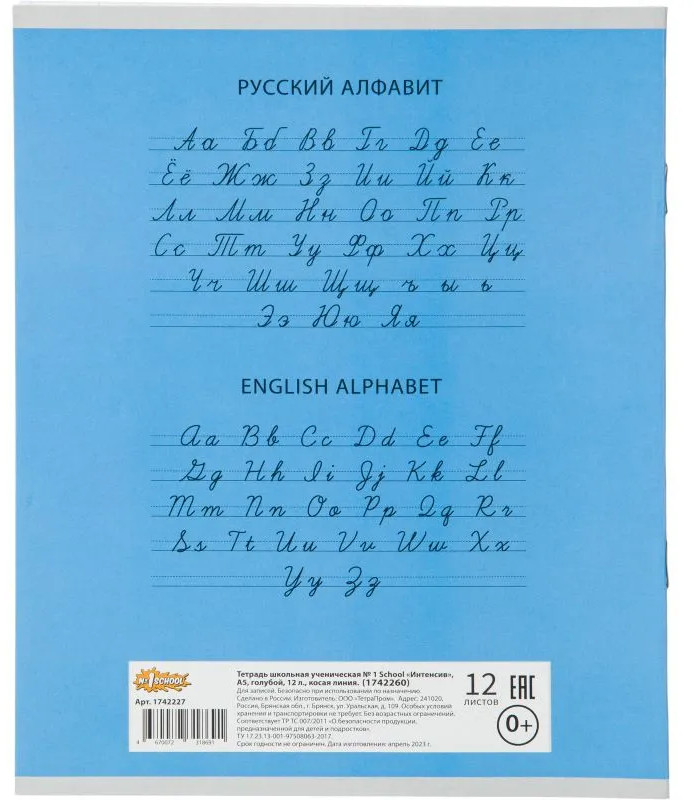 РУССКИЙ АЛФАВИТ
Аа Бб Вв Гг Дд Ее
Ёё Жж Зз Ии Йй Кк
Лл Мм Нн Оо Пп Рр
Сс Тт Уу Фф Хх Цц
Чч Шш Щщ ъ ы ь
Ээ Юю Яя
ENGLISH ALPHABET
Aa Bb Cc Dd Ee Ff
Gg Hh Ii Jj Kk Ll
Mm Nn Oo Pp Qq Rr
Ss Tt Uu Vv Ww Xx
Yy Zz
№1 SCHOOL
Арт. 1742227
4 670072 318691
Тетрадь школьная ученическая № 1 School «Интенсив»,
А5, голубой, 12 л., косая линия. (1742260)
Для записей. Безопасно при использовании по назначению.
Сделано в России. Изготовитель: ООО «ТетраПром». Адрес: 241020,
Россия, Брянская обл., г. Брянск, ул. Уральская, д. 109. Особых условий
хранения и транспортировки не требует. Без возрастных ограничений.
Соответствует ТР ТС 007/2011 «О безопасности продукции,
предназначенной для детей и подростков».
ТУ 17.23.13-001-97508063-2017.
Срок годности не ограничен. Дата изготовления: апрель 2023 г.
12
ЛИСТОВ
EAC
0+